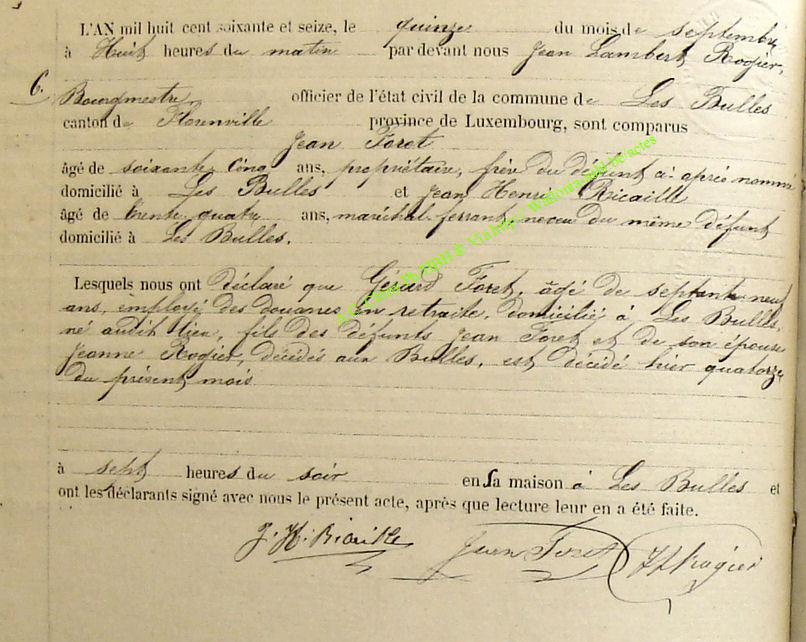 L'AN mil huit cent soixante et seize, le quinze du mois de septembre
à Huit heures du matin par devant nous Jean Lambert Rogier,
6. Bourgmestre officier de l'état civil de la commune de Les Bulles
canton de Florenville province de Luxembourg, sont comparus
Jean Foret
âgé de soixante cinq ans, propriétaire, frère du défunt ci après nommé
domicilié à Les Bulles et Jean Henri Ricaille
âgé de trente quatre ans, maréchal ferrant, neveu du même défunt
domicilié à Les Bulles.
Lesquels nous ont déclaré que Gérard Foret, âgé de septante neuf
ans, employé des douanes en retraite, domicilié à Les Bulles,
né audit lieu, fils des défunts Jean Foret et de son épouse
Jeanne Rogier, décédés aux Bulles, est décédé hier quatorze
du présent mois
à sept heures du soir en sa maison à Les Bulles et
ont les déclarants signé avec nous le présent acte, après que lecture leur en a été faite.
J. H. Ricaille Jean Foret JLRogier